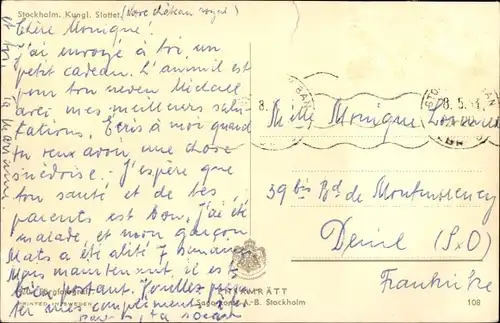 Stockholm. Kungl. Slottet. (Notre château royal)
Chère Monique!
J'ai envoyé à toi un
petit cadeau. L'animil est
pour ton neveu Mickael
avec mes meilleurs salu-
tations. Ecris à moi quand
tu veux avoir une chose
suédoise. J'espère que
ton santé et de tes
parents est bon. J'ai été
malade, et mon garçon
Mats a été alité 7
Mais maintenant, il est
bien portant. Veuillez
mes compliments
ta Marianne.
PRINTED IN SWEDEN
ENSAMRÄTT
A.-B. Stockholm
108
8. 5.
Mlle Monique
39 bis Bd de Montmorency
Deuil (S.O)
Frankrike